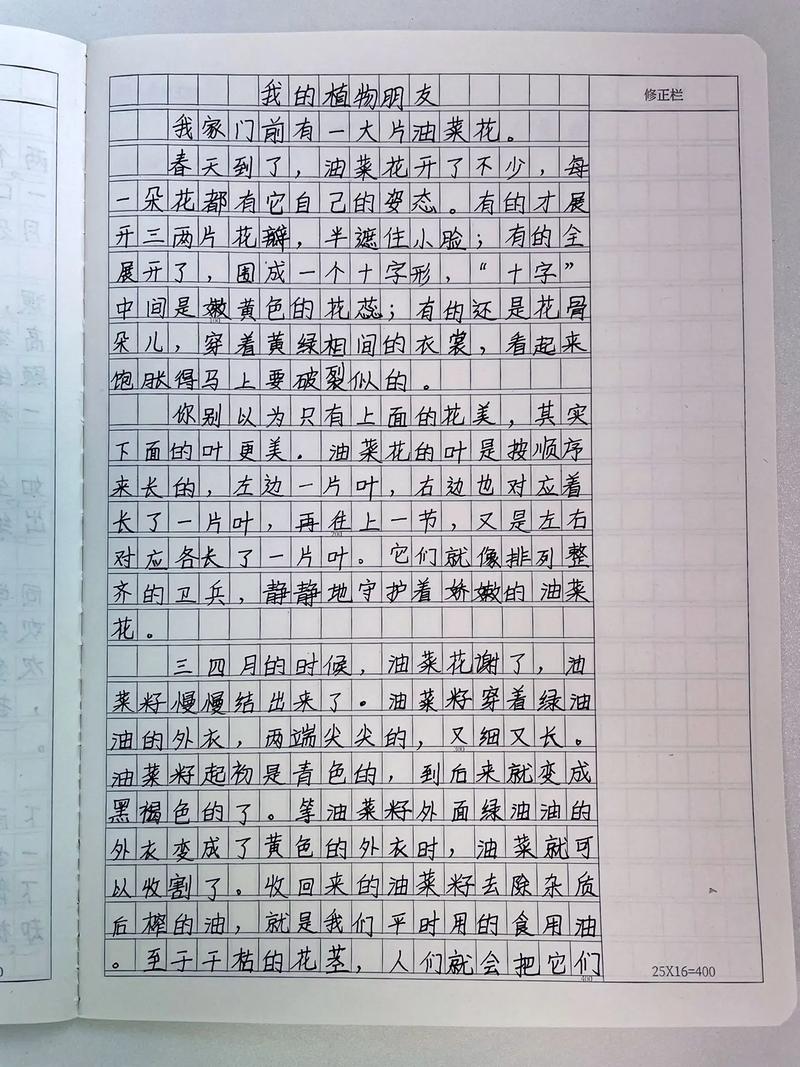 我的植物朋友
修正栏
我家门前有一大片油菜花。
春天到了，油菜花开了不少，每
一朵花都有它自己的姿态。有的才展
开三两片花瓣，半遮住小脸；有的全
展开了，围成一个十字形，“十字”
中间是嫩黄色的花蕊；有的还是花骨
朵儿，穿着黄绿相间的衣裳，看起来
饱胀得马上要破裂似的。
你别以为只有上面的花美，其实
下面的叶更美．油菜花的叶是按顺序
来长的，左边一片叶，右边也对应着
长了一片叶，再往上一节，又是左右
对应各长了一片叶。它们就像排列整
齐的卫兵，静静地守护着娇嫩的油菜
花。
三四月的时候，油菜花谢了，油
菜籽慢慢结出来了。油菜籽穿着绿油
油的外衣，两端尖尖的，又细又长。
油菜籽起初是青色的，到后来就变成
黑褐色的了。等油菜籽外面绿油油的
外衣变成了黄色的外衣时，油菜就可
以收割了。收回来的油菜籽去除杂质
后榨的油，就是我们平时用的食用油
。至于干枯的花茎，人们就会把它们
25X16=400